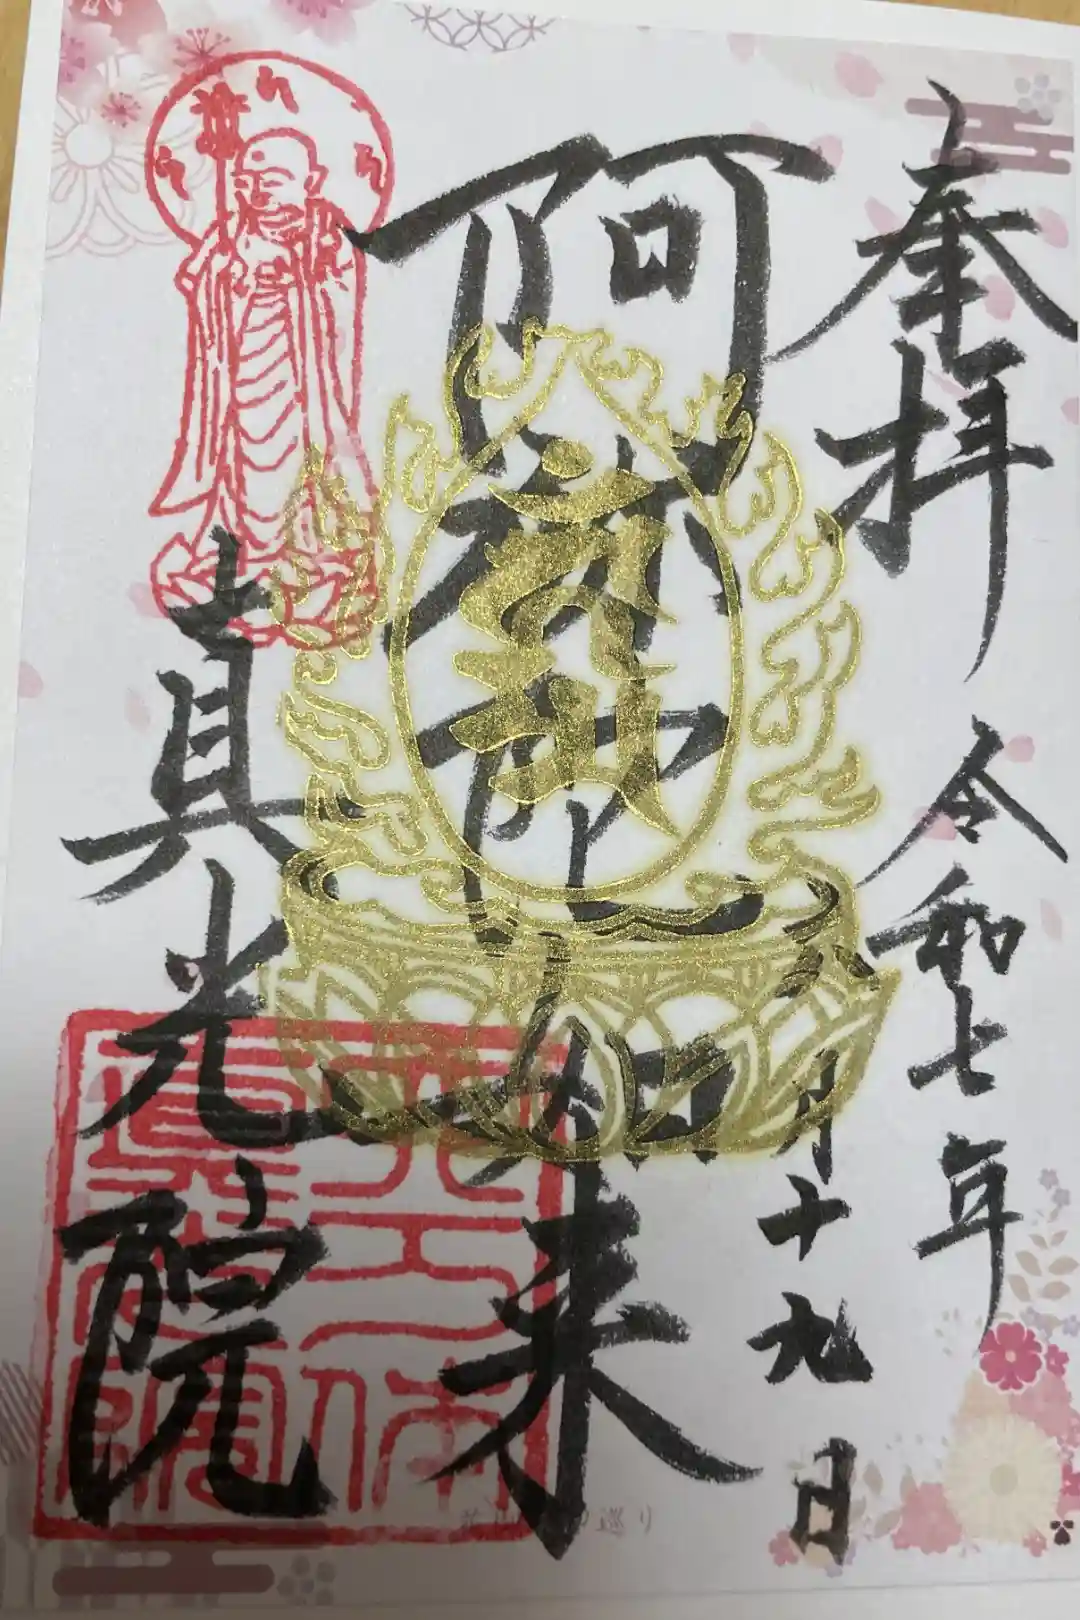 奉拝
令和七年
八月十九日
阿弥陀如来
真光院